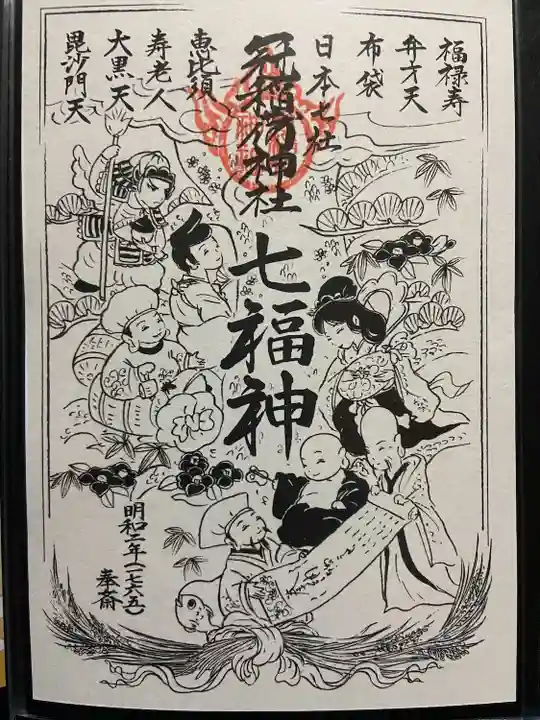 福禄寿
弁才天
布袋
日本七社
冠稲荷神社
七福神
恵比須
寿老人
大黒天
毘沙門天
明和二年(一七六五)
奉斎